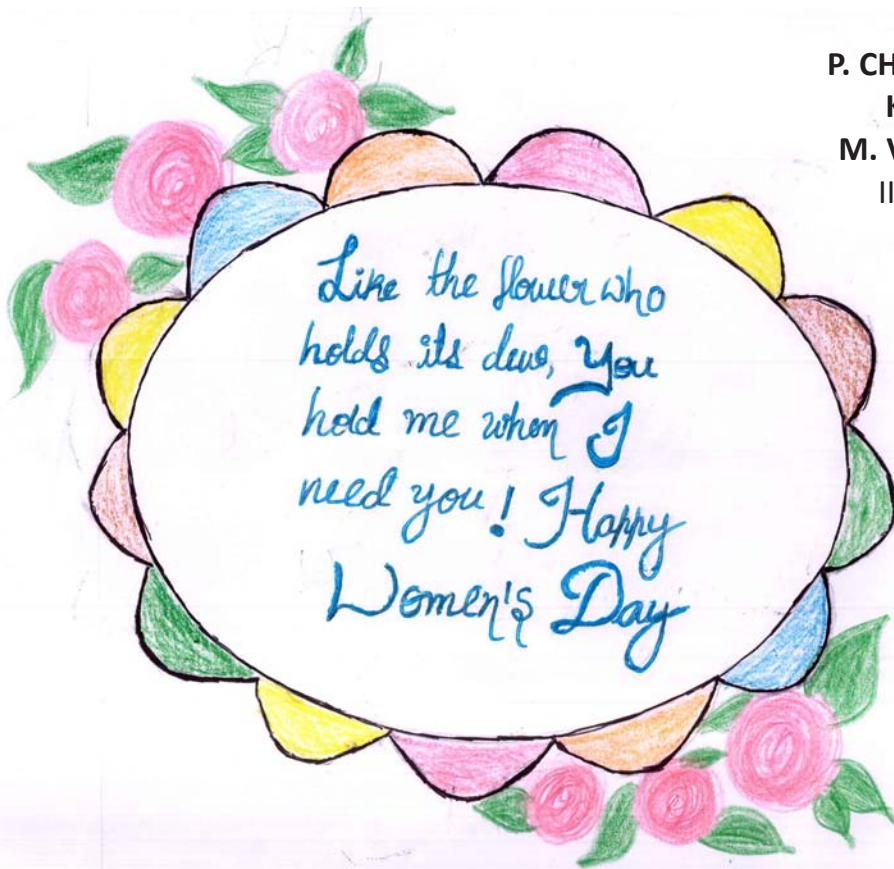 P. CH
M. V
II
Like the flower who
holds its dew, You
hold me when I
need you! Happy
Women's Day